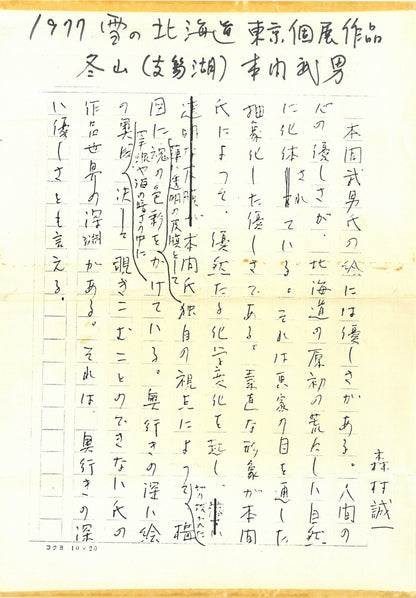 1977 雪の北海道 東京個展作品
冬山(支笏湖) 本間武男
森村誠一
本間武男氏の絵には優しさがある。人間の
心の優しさが、北海道の原初の荒々しい自然
に化体されている。それは画家の目を通した
抽象化した優しさである。素直な形象が本間
氏によって、優然たる化学変化を起し、
本間氏独自の視点によって
透明の皮膜として
に魂の色彩をかけている。奥行きの深い絵
の暗さの中に
の奥に決して覗きこむことのできない氏の
作品世界の深淵がある。それは、奥行きの深
い優しさとも言える。
コクヨ 10×20